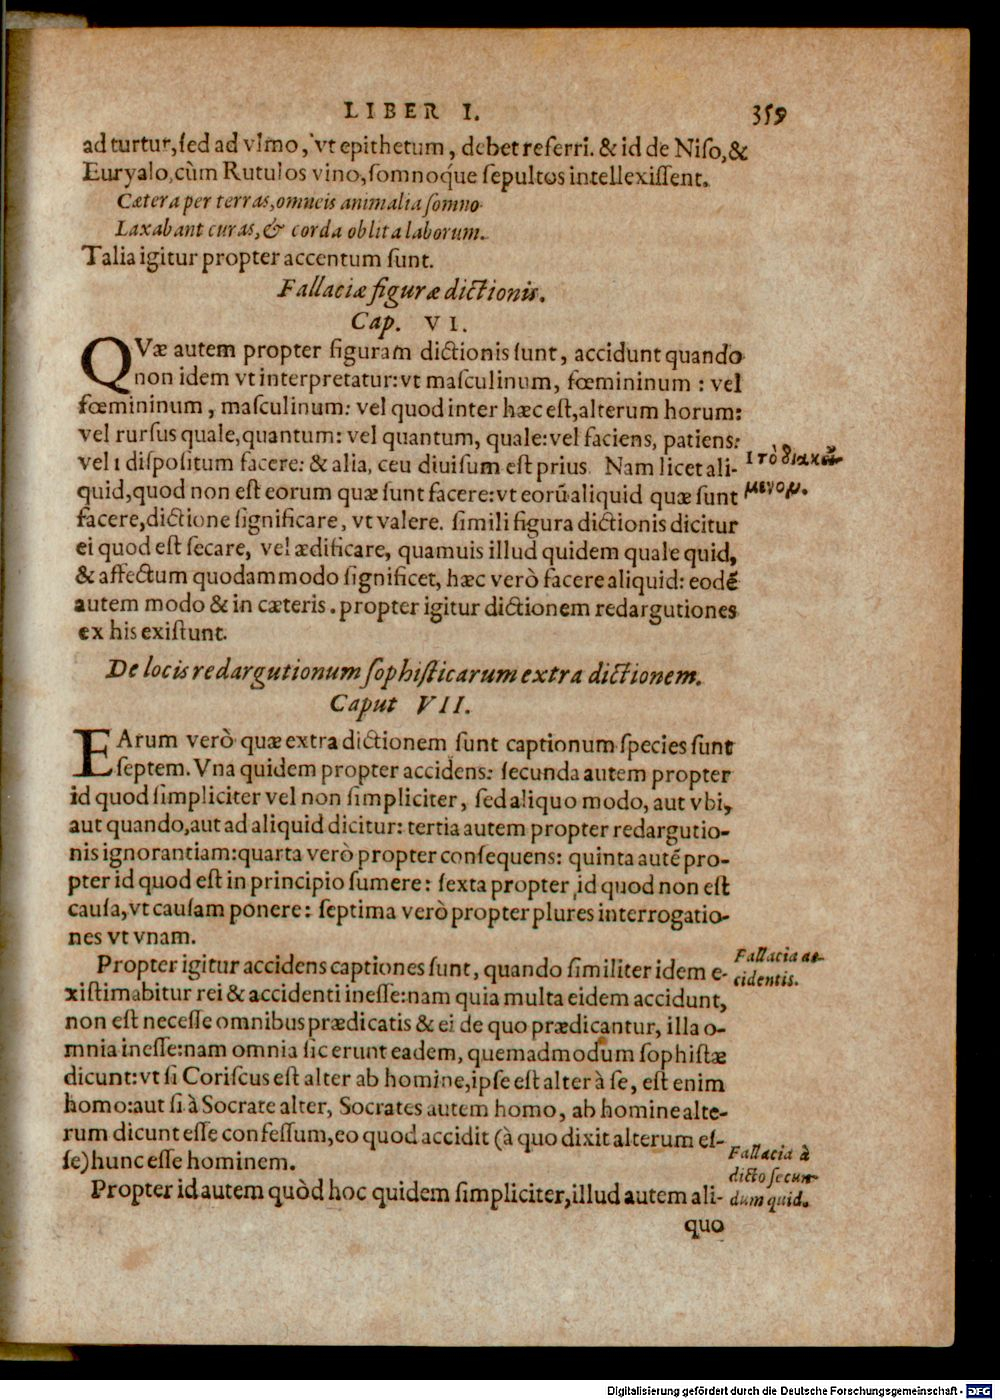 LIBER I. 359
ad turtur, ſed ad vlmo, vt epithetum, debet referri. & id de Niſo, &
Euryalo, cùm Rutulos vino, ſomnoq́ue ſepultos intellexiſſent.
Cætera per terras, omneis animalia ſomno
Laxabant curas, & corda oblita laborum.
Talia igitur propter accentum ſunt.
Fallaciæ figuræ dictionis.
Cap. VI.
QVæ autem propter figuram dictionis ſunt, accidunt quando
non idem vt interpretatur: vt maſculinum, fœmininum: vel
fœmininum, maſculinum: vel quod inter hæc eſt, alterum horum:
vel rurſus quale, quantum: vel quantum, quale: vel faciens, patiens:
vel 1 diſpoſitum facere: & alia, ceu diuiſum eſt prius. Nam licet ali-
quid, quod non eſt eorum quæ ſunt facere: vt eorũ aliquid quæ ſunt
facere, dictione ſignificare, vt valere. ſimili figura dictionis dicitur
ei quod eſt ſecare, vel ædificare, quamuis illud quidem quale quid,
& affectum quodammodo ſignificet, hæc verò facere aliquid: eodẽ
autem modo & in cæteris. propter igitur dictionem redargutiones
ex his exiſtunt.
1 τὸ διακεί-
μενον.
De locis redargutionum ſophiſticarum extra dictionem.
Caput VII.
EArum verò quæ extra dictionem ſunt captionum ſpecies ſunt
ſeptem. Vna quidem propter accidens: ſecunda autem propter
id quod ſimpliciter vel non ſimpliciter, ſed aliquo modo, aut vbi,
aut quando, aut ad aliquid dicitur: tertia autem propter redargutio-
nis ignorantiam: quarta verò propter conſequens: quinta autẽ pro-
pter id quod eſt in principio ſumere: ſexta propter id quod non eſt
cauſa, vt cauſam ponere: ſeptima verò propter plures interrogatio-
nes vt vnam.
Propter igitur accidens captiones ſunt, quando ſimiliter idem e-
xiſtimabitur rei & accidenti ineſſe: nam quia multa eidem accidunt,
non eſt neceſſe omnibus prædicatis & ei de quo prædicantur, illa o-
mnia ineſſe: nam omnia ſic erunt eadem, quemadmodum ſophiſtæ
dicunt: vt ſi Coriſcus eſt alter ab homine, ipſe eſt alter à ſe, eſt enim
homo: aut ſi à Socrate alter, Socrates autem homo, ab homine alte-
rum dicunt eſſe confeſſum, eo quod accidit (à quo dixit alterum eſ-
ſe) hunc eſſe hominem.
Fallacia ac-
cidentis.
Propter id autem quòd hoc quidem ſimpliciter, illud autem ali-
Fallacia à
dicto ſecun-
dum quid.
quo
Digitalisierung gefördert durch die Deutsche Forschungsgemeinschaft - DFG